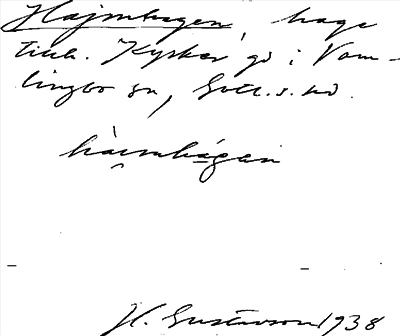 Hajmhagen, hage
tillh. Kyrkeg̊d i Vam-
lingbo sn, Gotl. s. hd.
hàimhá̱gän
H. Gustavson 1938